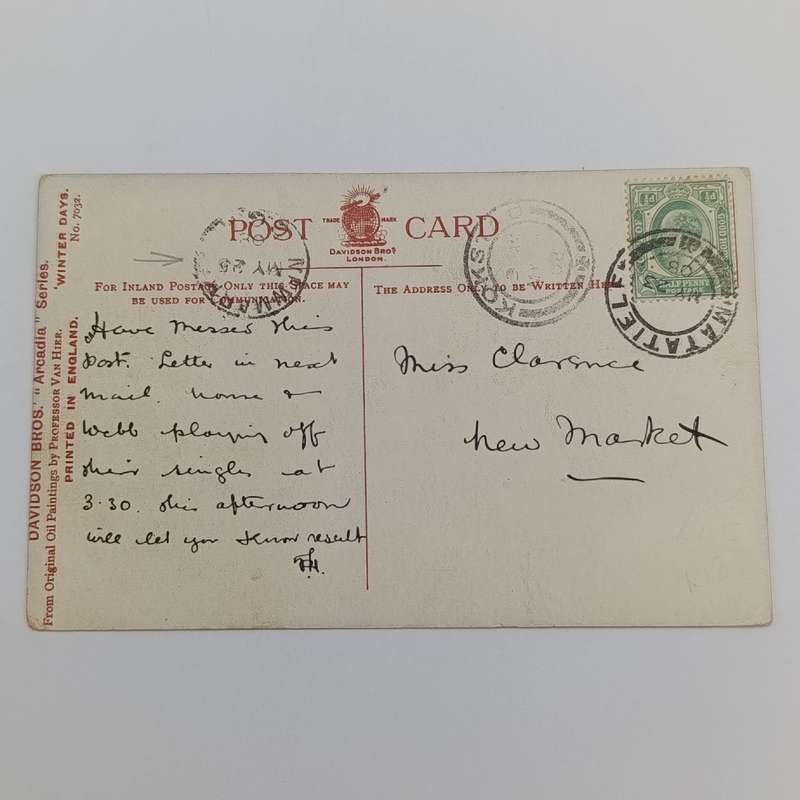 DAVIDSON BROS.' "Arcadia" Series.
From Original Oil Paintings by PROFESSOR VAN HIER.
PRINTED IN ENGLAND.
'WINTER DAYS.
No. 7032.
POST CARD
TRADE MARK
DAVIDSON BROS.
LONDON.
FOR INLAND POSTAGE ONLY THIS SPACE MAY
BE USED FOR COMMUNICATION.
THE ADDRESS ONLY TO BE WRITTEN HERE
MY 25
KOKS
MATATIELE
HALFPENNY
POSTAGE
Have Messed this
post. Letter in next
mail.
Webb playing off
their singles at
3.30. this afternoon
will let you know result
Miss Clarence
New Market